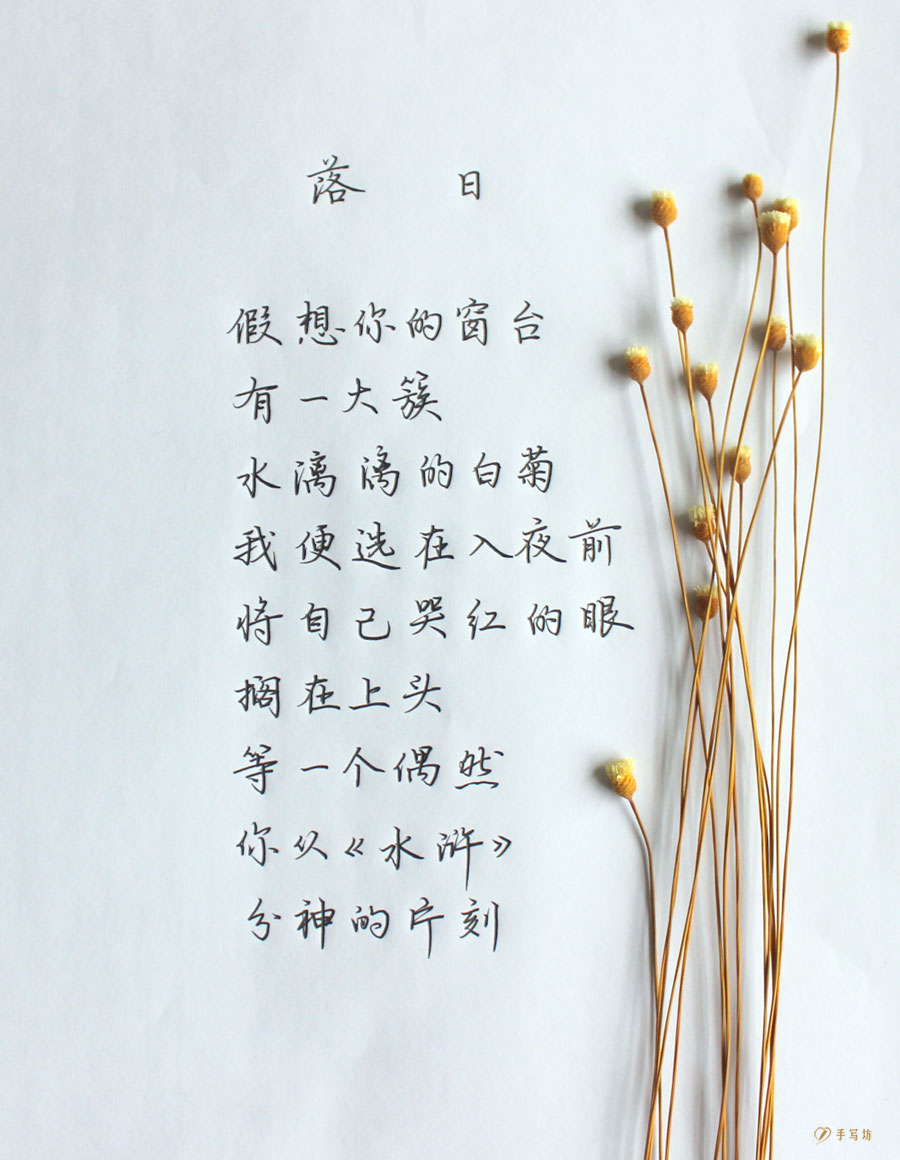 落 日
假想你的窗台
有一大簇
水漓漓的白菊
我便选在入夜前
将自己哭红的眼
搁在上头
等一个偶然
你从《水浒》
分神的片刻
手写坊